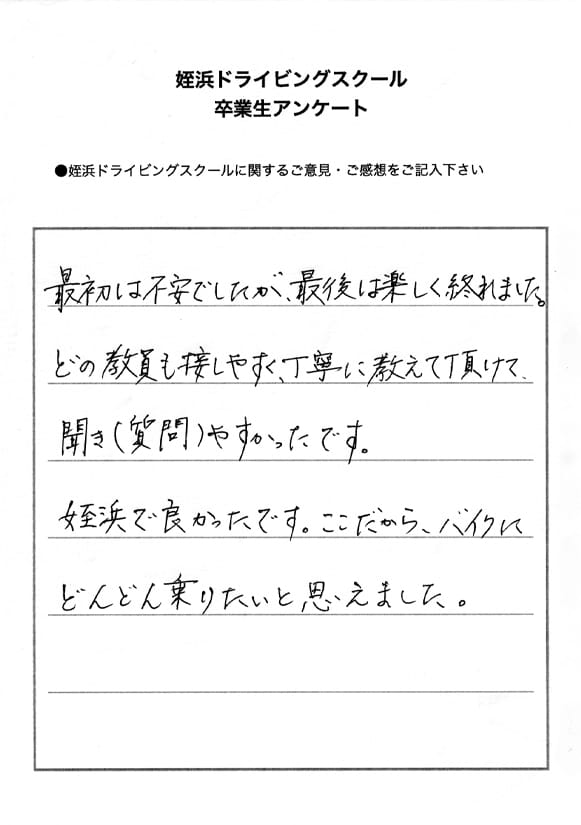 姪浜ドライビングスクール
卒業生アンケート
●姪浜ドライビングスクールに関するご意見・ご感想をご記入下さい
最初は不安でしたが、最後は楽しく終れました。
どの教員も接しやすく、丁寧に教えて頂けて、
聞き(質問)やすかったです。
姪浜で良かったです。ここだから、バイクに
どんどん乗りたいと思えました。